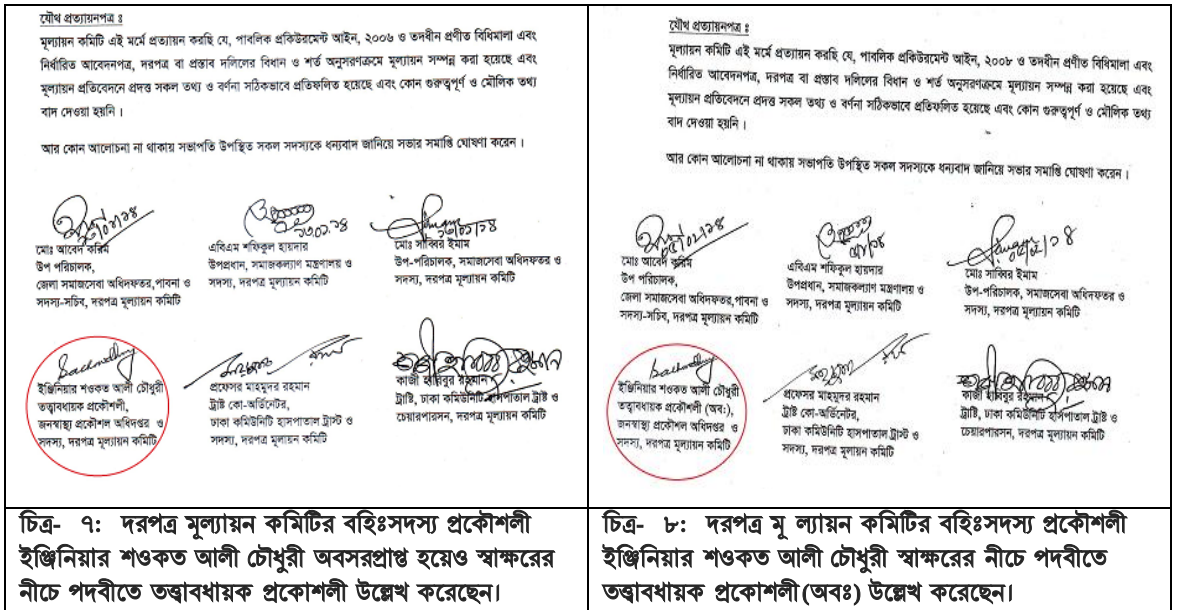 যৌথ প্রত্যায়নপত্র ঃ
মূল্যায়ন কমিটি এই মর্মে প্রত্যায়ন করছি যে, পাবলিক প্রকিউরমেন্ট আইন, ২০০৬ ও তদধীন প্রণীত বিধিমালা এবং
নির্ধারিত আবেদনপত্র, দরপত্র বা প্রস্তাব দলিলের বিধান ও শর্ত অনুসরণক্রমে মূল্যায়ন সম্পন্ন করা হয়েছে এবং
মূল্যায়ন প্রতিবেদনে প্রদত্ত সকল তথ্য ও বর্ণনা সঠিকভাবে প্রতিফলিত হয়েছে এবং কোন গুরুত্বপূর্ণ ও মৌলিক তথ্য
বাদ দেওয়া হয়নি।
আর কোন আলোচনা না থাকায় সভাপতি উপস্থিত সকল সদস্যকে ধন্যবাদ জানিয়ে সভার সমাপ্তি ঘোষণা করেন।
২৩.০২.১৪
মোঃ আবেদ করিম
উপ পরিচালক,
জেলা সমাজসেবা অধিদফতর,পাবনা ও
সদস্য-সচিব, দরপত্র মূল্যায়ন কমিটি
এবিএম শফিকুল হায়দার
উপপ্রধান, সমাজকল্যাণ মন্ত্রণালয় ও
সদস্য, দরপত্র মূল্যায়ন কমিটি
মোঃ সাব্বির ইমাম
উপ-পরিচালক, সমাজসেবা অধিদফতর ও
সদস্য, দরপত্র মূল্যায়ন কমিটি
ইঞ্জিনিয়ার শওকত আলী চৌধুরী
তত্ত্বাবধায়ক প্রকৌশলী,
জনস্বাস্থ্য প্রকৌশল অধিদপ্তর ও
সদস্য, দরপত্র মূল্যায়ন কমিটি
প্রফেসর মাহমুদর রহমান
ট্রাষ্ট কো-অর্ডিনেটর,
ঢাকা কমিউনিটি হাসপাতাল ট্রাস্ট ও
সদস্য, দরপত্র মূল্যায়ন কমিটি
কাজী হাবিবুর রহমান
ট্রাষ্টি, ঢাকা কমিউনিটি হাসপাতাল ট্রাষ্ট ও
চেয়ারপারসন, দরপত্র মূল্যায়ন কমিটি
চিত্র- ৭: দরপত্র মূল্যায়ন কমিটির বহিঃসদস্য প্রকৌশলী
ইঞ্জিনিয়ার শওকত আলী চৌধুরী অবসরপ্রাপ্ত হয়েও স্বাক্ষরের
নীচে পদবীতে তত্ত্বাবধায়ক প্রকোশলী উল্লেখ করেছেন।
যৌথ প্রত্যায়নপত্র ঃ
মূল্যায়ন কমিটি এই মর্মে প্রত্যায়ন করছি যে, পাবলিক প্রকিউরমেন্ট আইন, ২০০৮ ও তদধীন প্রণীত বিধিমালা এবং
নির্ধারিত আবেদনপত্র, দরপত্র বা প্রস্তাব দলিলের বিধান ও শর্ত অনুসরণক্রমে মূল্যায়ন সম্পন্ন করা হয়েছে এবং
মূল্যায়ন প্রতিবেদনে প্রদত্ত সকল তথ্য ও বর্ণনা সঠিকভাবে প্রতিফলিত হয়েছে এবং কোন গুরুত্বপূর্ণ ও মৌলিক তথ্য
বাদ দেওয়া হয়নি।
আর কোন আলোচনা না থাকায় সভাপতি উপস্থিত সকল সদস্যকে ধন্যবাদ জানিয়ে সভার সমাপ্তি ঘোষণা করেন।
মোঃ আবেদ করিম
উপ পরিচালক,
জেলা সমাজসেবা অধিদফতর,পাবনা ও
সদস্য-সচিব, দরপত্র মূল্যায়ন কমিটি
এবিএম শফিকুল হায়দার
উপপ্রধান, সমাজকল্যাণ মন্ত্রণালয় ও
সদস্য, দরপত্র মূল্যায়ন কমিটি
মোঃ সাব্বির ইমাম
উপ-পরিচালক, সমাজসেবা অধিদফতর ও
সদস্য, দরপত্র মূল্যায়ন কমিটি
ইঞ্জিনিয়ার শওকত আলী চৌধুরী
তত্ত্বাবধায়ক প্রকৌশলী (অব:),
জনস্বাস্থ্য প্রকৌশল অধিদপ্তর ও
সদস্য, দরপত্র মূল্যায়ন কমিটি
প্রফেসর মাহমুদর রহমান
ট্রাষ্ট কো-অর্ডিনেটর,
ঢাকা কমিউনিটি হাসপাতাল ট্রাস্ট ও
সদস্য, দরপত্র মূল্যায়ন কমিটি
কাজী হাবিবুর রহমান
ট্রাষ্টি, ঢাকা কমিউনিটি হাসপাতাল ট্রাষ্ট ও
চেয়ারপারসন, দরপত্র মূল্যায়ন কমিটি
চিত্র- ৮: দরপত্র মূ ল্যায়ন কমিটির বহিঃসদস্য প্রকৌশলী
ইঞ্জিনিয়ার শওকত আলী চৌধুরী স্বাক্ষরের নীচে পদবীতে
তত্ত্বাবধায়ক প্রকোশলী(অবঃ) উল্লেখ করেছেন।